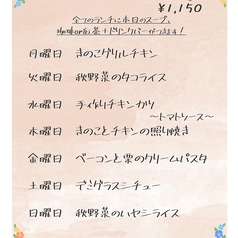 ¥1,150
全てのランチに本日のスープ、
珈琲or紅茶+ドリンクバーがつきます!
月曜日 きのこグリルチキン
火曜日 秋野菜のタコライス
水曜日 手作りチキンカツ
〜トマトソース〜
木曜日 きのことチキンの照り焼き
金曜日 ベーコンと栗のクリームパスタ
土曜日 デミグラスシチュー
日曜日 秋野菜のハヤシライス